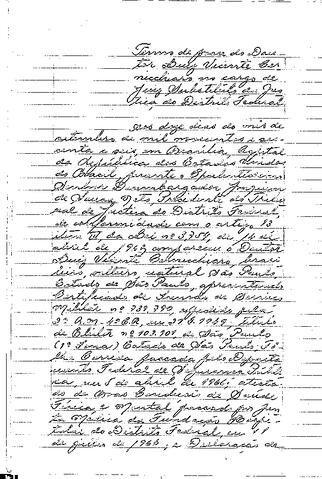 Termo de posse do Dou-
tor Luiz Vicente Cer-
nicchiaro no cargo de
Juiz Substituto da Jus-
tiça do Distrito Federal
Aos doze dias do mês de
setembro de mil novecentos e ses-
senta e seis, em Brasília, Capital
da República dos Estados Unidos
do Brasil, presente o Excelentíssimo
Senhor Desembargador
de Neto, Presidente do Tribu-
nal de Justiça do Distrito Federal,
de conformidade com o artigo 13
item III da Lei nº 3.754, de 14 de
abril de 1960, compareceu o Doutor
Luiz Vicente Cernicchiaro, brasi-
leiro, solteiro, natural de São Paulo,
Estado de São Paulo, apresentando
Certificado de Isenção do Serviço
Militar nº expedido pela
2ª R.M. título
de Eleitor nº de São Paulo
(1ª Zona) Estado de São Paulo, Fo-
lha Corrida passada pelo Departa-
mento Federal de Segurança Públi-
ca, em 5 de abril de 1966; atesta-
do de Boas Condições de Saúde
Física e Mental passado por Jun-
ta Médica da Fundação Hospi-
talar do Distrito Federal, em
de de 1966; e Declaração de